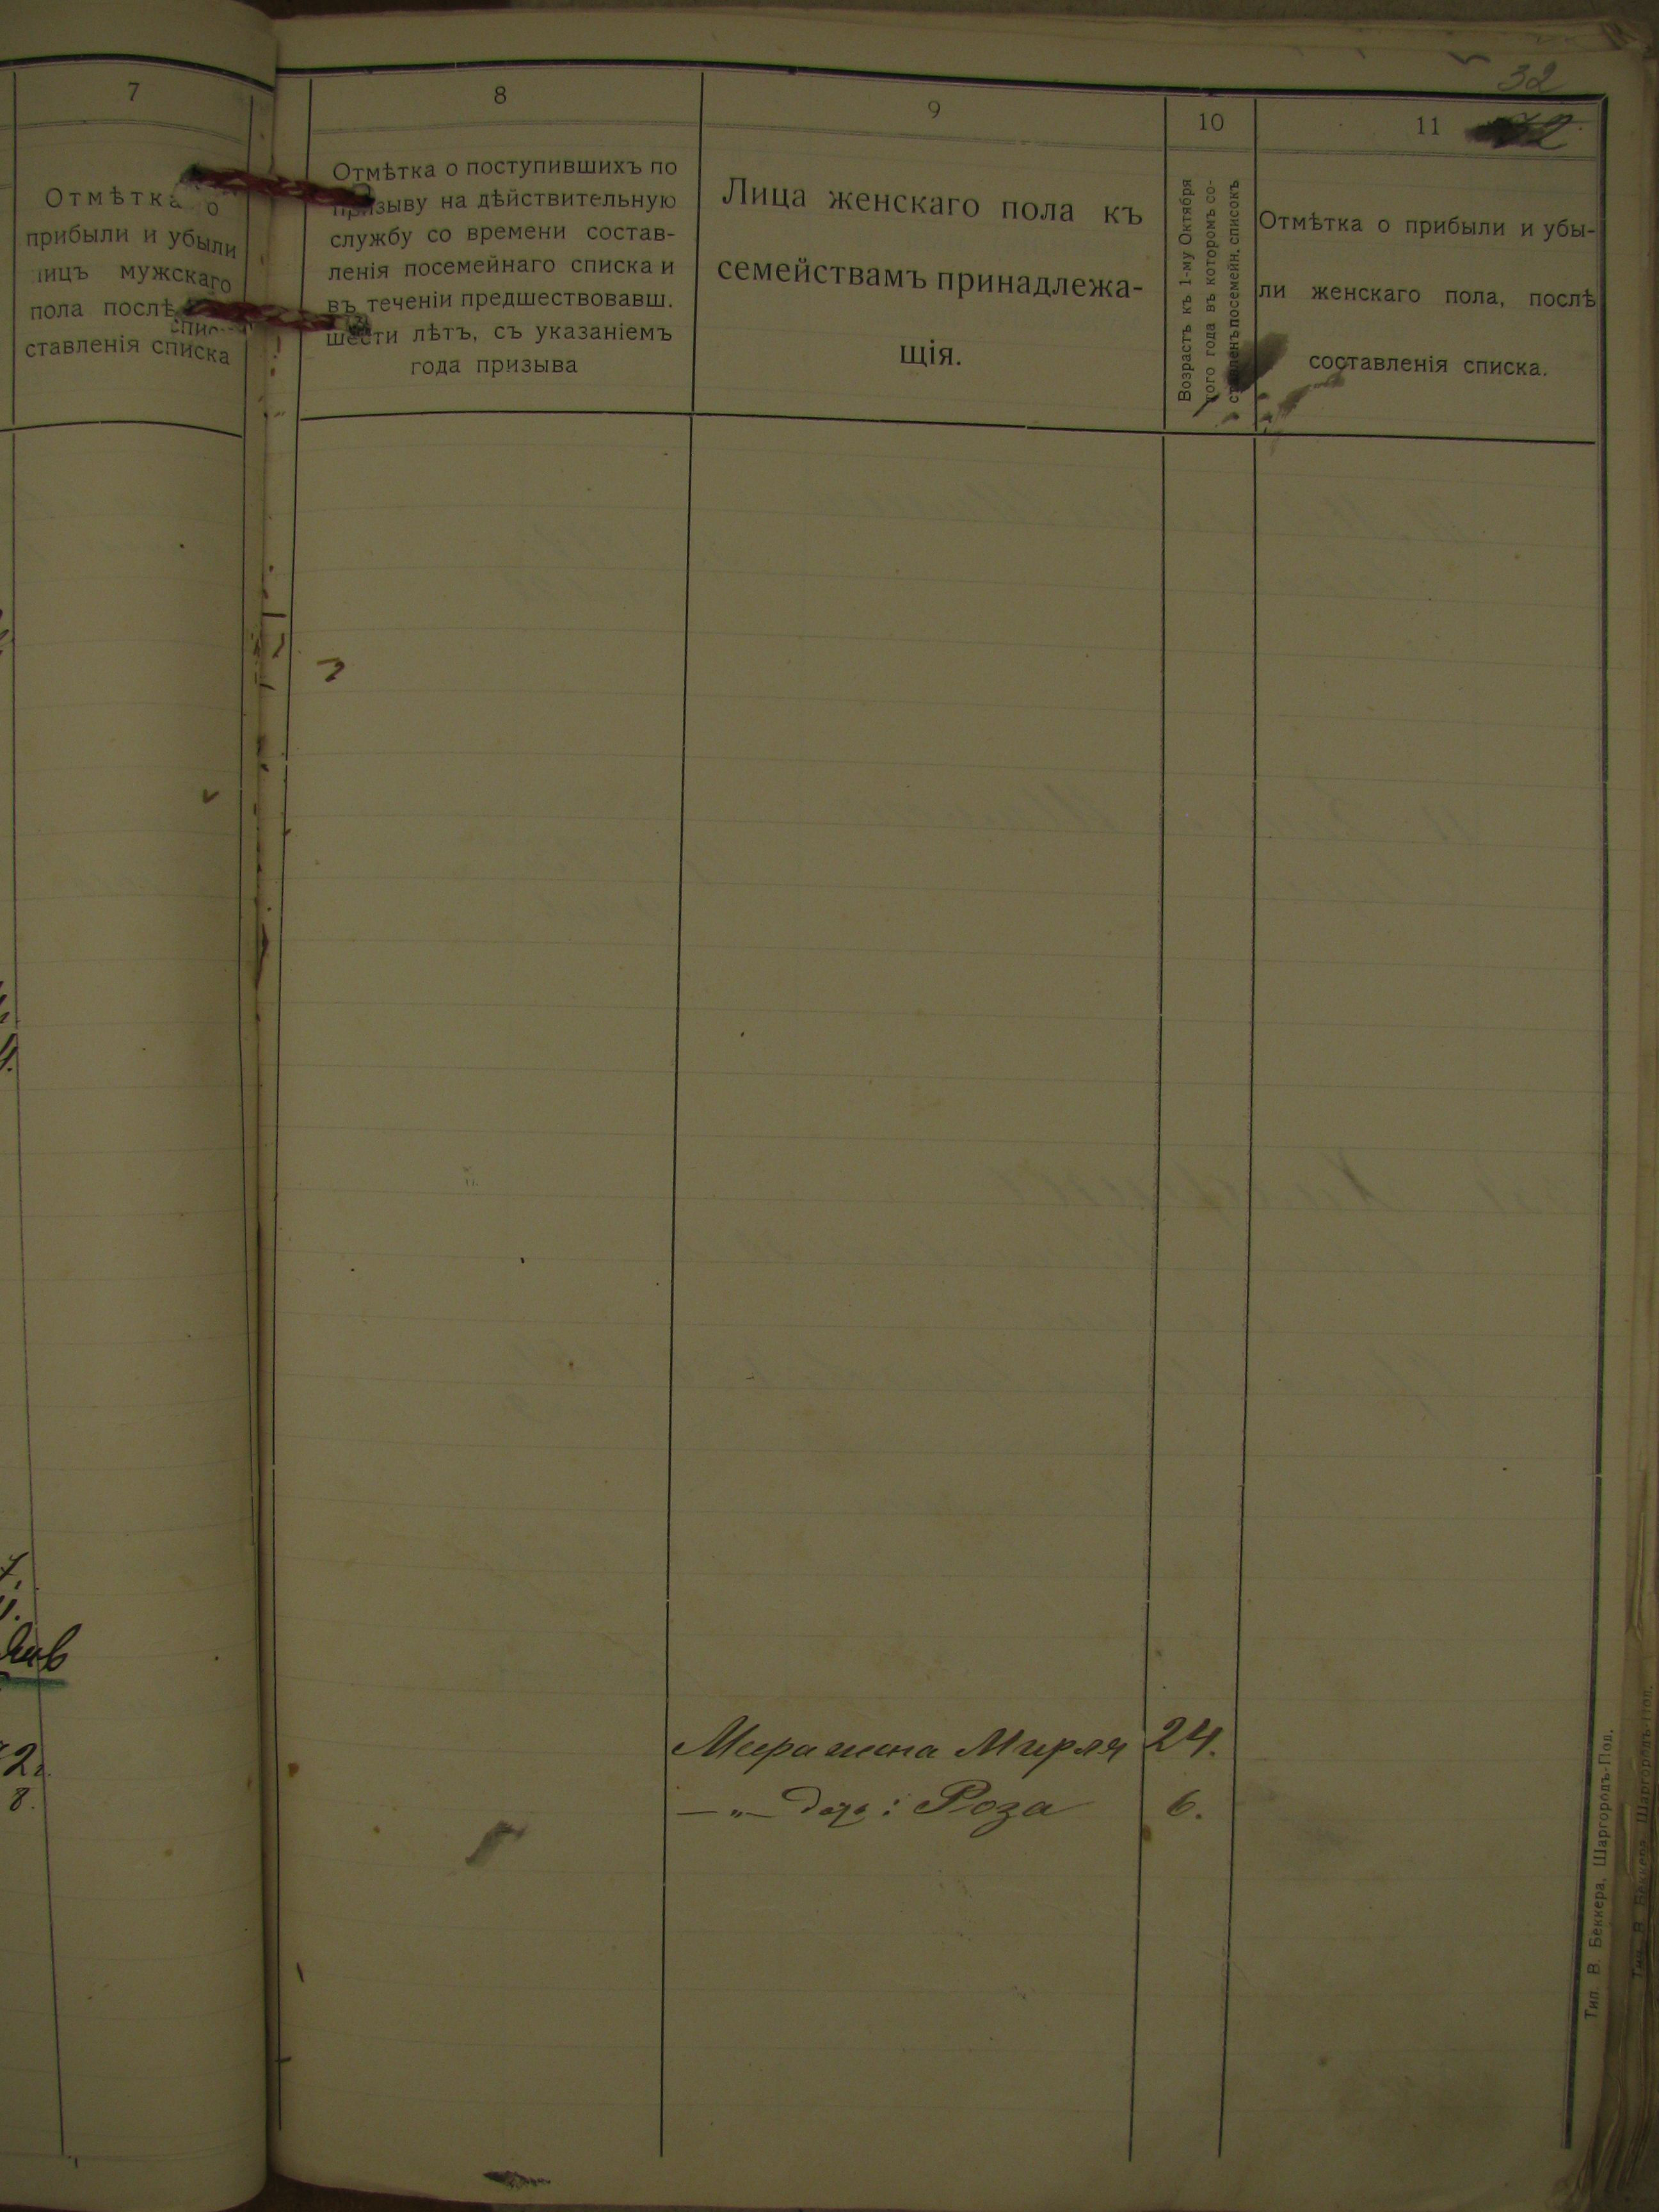 32
7
Отмѣтка о
прибыли и убыли
лицъ мужскаго
пола послѣ
ставленія списка
8
Отмѣтка о поступившихъ по
призыву на дѣйствительную
службу со времени состав-
ленія посемейнаго списка и
въ теченіи предшествовавш.
шести лѣтъ, съ указаніемъ
года призыва
9
Лица женскаго пола къ
семействамъ принадлежа-
щія.
10
Возрастъ къ 1-му Октября
того года въ которомъ со-
ставленъ посемейн. списокъ
11
Отмѣтка о прибыли и убы-
ли женскаго пола, послѣ
составленія списка.
жена Мирля 24.
—"— доч: Роза 6.
Тип. В. Беккера, Шаргородъ-Под.
Тип. В. Беккера, Шаргородъ-Под.